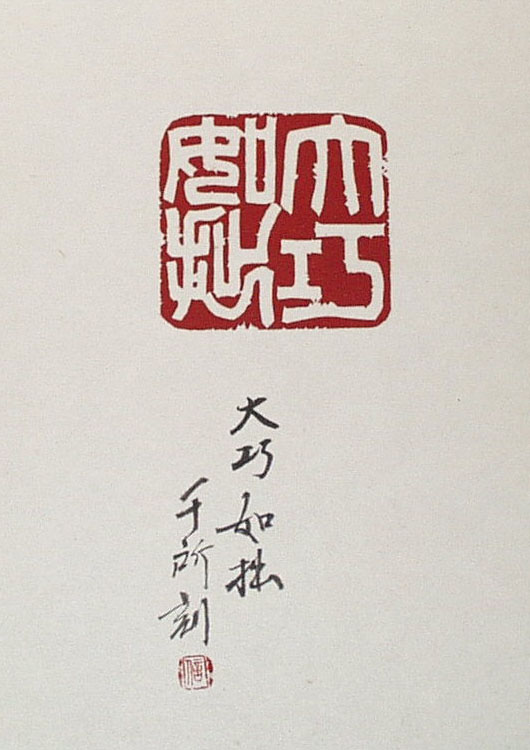 大巧
如拙
大巧如拙
千所刻
信